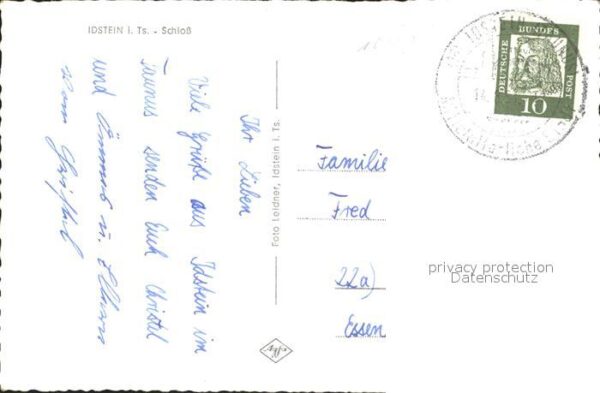 IDSTEIN i. Ts. - Schloß
Ihr Lieben
Viele Grüße aus Idstein im
Taunus senden Euch Christel
und
Foto Leidner, Idstein i. Ts.
Agfa
Familie
Fred
22a)
Essen
DEUTSCHE BUNDES POST
10
IDSTEIN
privacy protection
Datenschutz